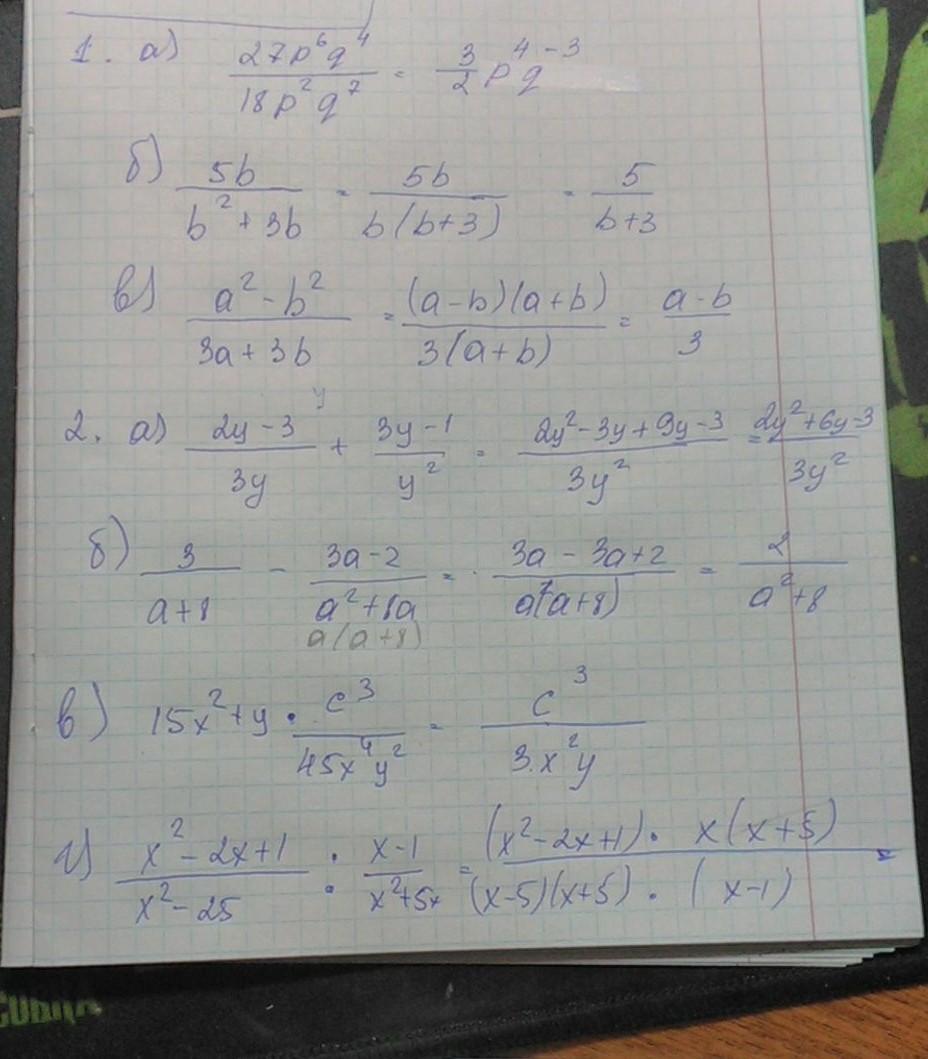 1. а) 27p⁶q⁴/18p²q⁷ = 3/2 p⁴q⁻³
б) 5b/(b²+3b) = 5b/(b(b+3)) = 5/(b+3)
в) (a²-b²)/(3a+3b) = (a-b)(a+b)/(3(a+b)) = (a-b)/3
2. а) (2y-3)/3y ^y + (3y-1)/y² = (2y²-3y+9y-3)/3y² = (2y²+6y-3)/3y²
б) 3/(a+8) - (3a-2)/(a²+8a) = (3a-3a+2)/(a(a+8)) = 2/(a²+8)
a(a+8)
в) 15x²+y · c³/(45x⁴y²) = c³/(3.x²y)
г) (x²-2x+1)/(x²-25) : (x-1)/(x²+5x) = (x²-2x+1)· x(x+5)/((x-5)(x+5)·(x-1)) =